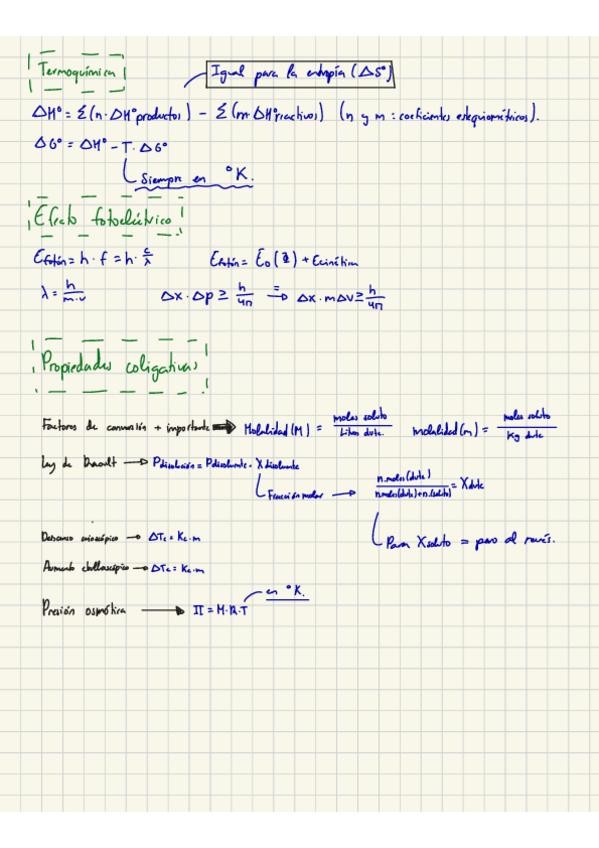 Termoquímica
Igual para la entropía (ΔS°)
ΔH° = Σ(n·ΔH°productos) - Σ(m·ΔH°reactivos) (n y m: coeficientes estequiométricos).
ΔG° = ΔH° - T·ΔG°
Siempre en °K.
Efecto fotoeléctrico
Efotón = h·f = h·c/λ Efotón = E₀(Φ) + Ecinética
λ = h/m·v Δx·Δp ≥ h/4π ⇒ Δx·mΔv ≥ h/4π
Propiedades coligativas
Factores de conversión + importante → Molalidad(M) = moles soluto/Litros dute. molalidad(m) = moles soluto/Kg dute
Ley de Raoult → Pdisolución = Pdisolvente·Xdisolvente
Fracción molar → n.moles(dute)/n.moles(dute)+n.(soluto) = Xdute
Para Xsoluto = pero al revés.
Descenso crioscópico → ΔTc = Kc·m
Aumento ebulloscópico → ΔTe = Ke·m
en °K.
Presión osmótica → Π = M·R·T